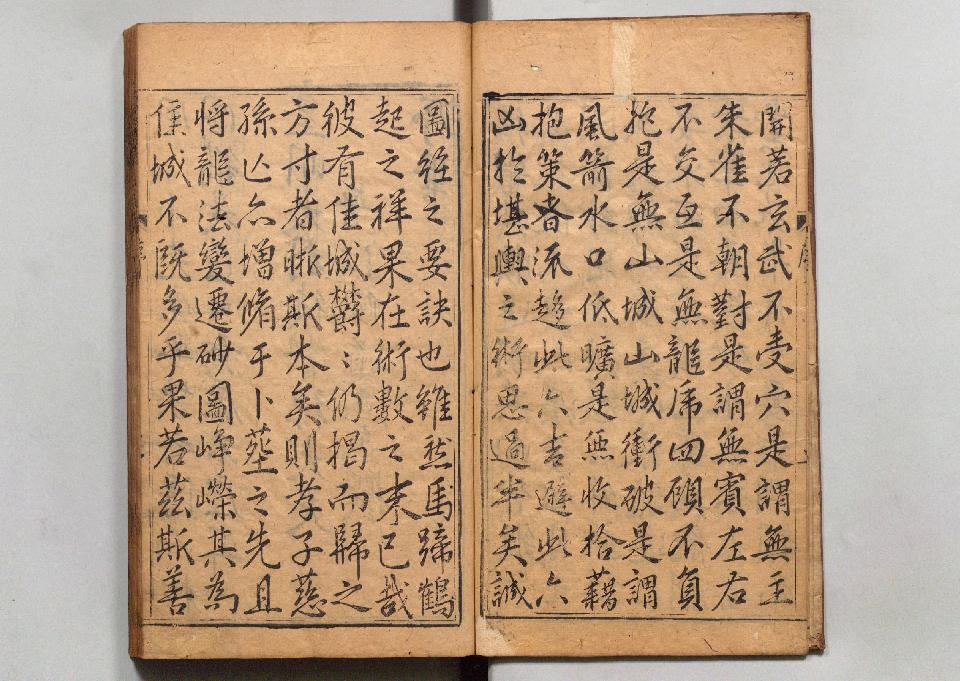 開若玄武不受穴是謂無主
朱雀不朝對是謂無賓左右
不交互是無龍虎四顧不負
抱是無山城山城衝破是謂
風箭水口低曠是無收拾藉
抱策者流趍此六吉避此六
凶於堪輿之術思過半矣誠
圖經之要訣也雖然馬蹄鶴
起之祥果在術數之末已哉
彼有佳城欝〻仍揭而歸之
方寸者晰斯本矣則孝子慈
孫亡亦增脩于卜塟之先且
將龍法變遷砂圖崢嶸其為
佳城不既多乎果若茲斯善